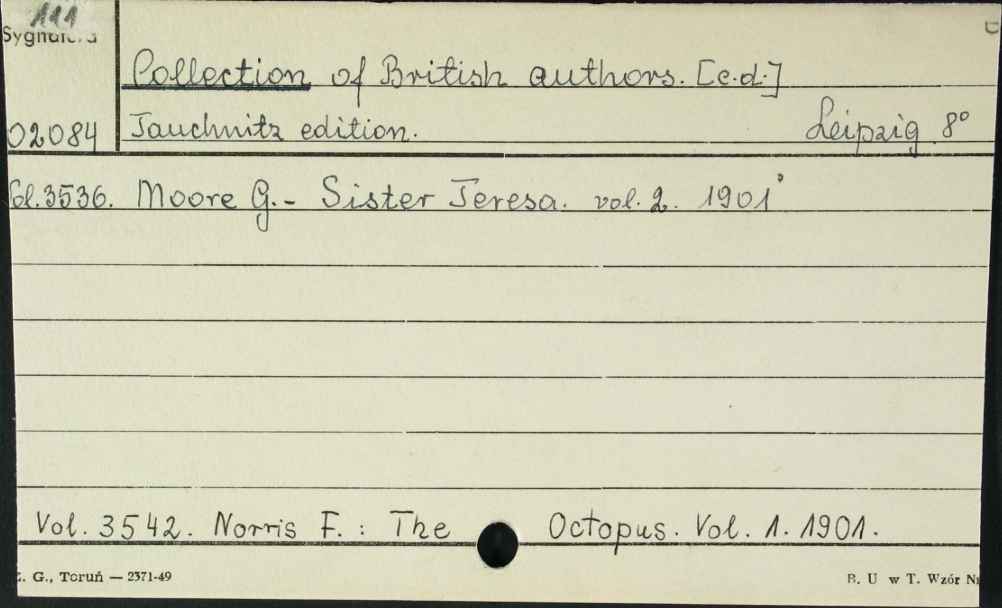 111
Sygnatura
Collection of British authors. [c.d.]
02084 Tauchnitz edition. Leipzig 8°
Vol. 3536. Moore G. - Sister Teresa. vol. 2. 1901
Vol. 3542. Norris F. : The Octopus. Vol. 1. 1901.
Z. G., Toruń — 2371-49 B. U w T. Wzór Nr